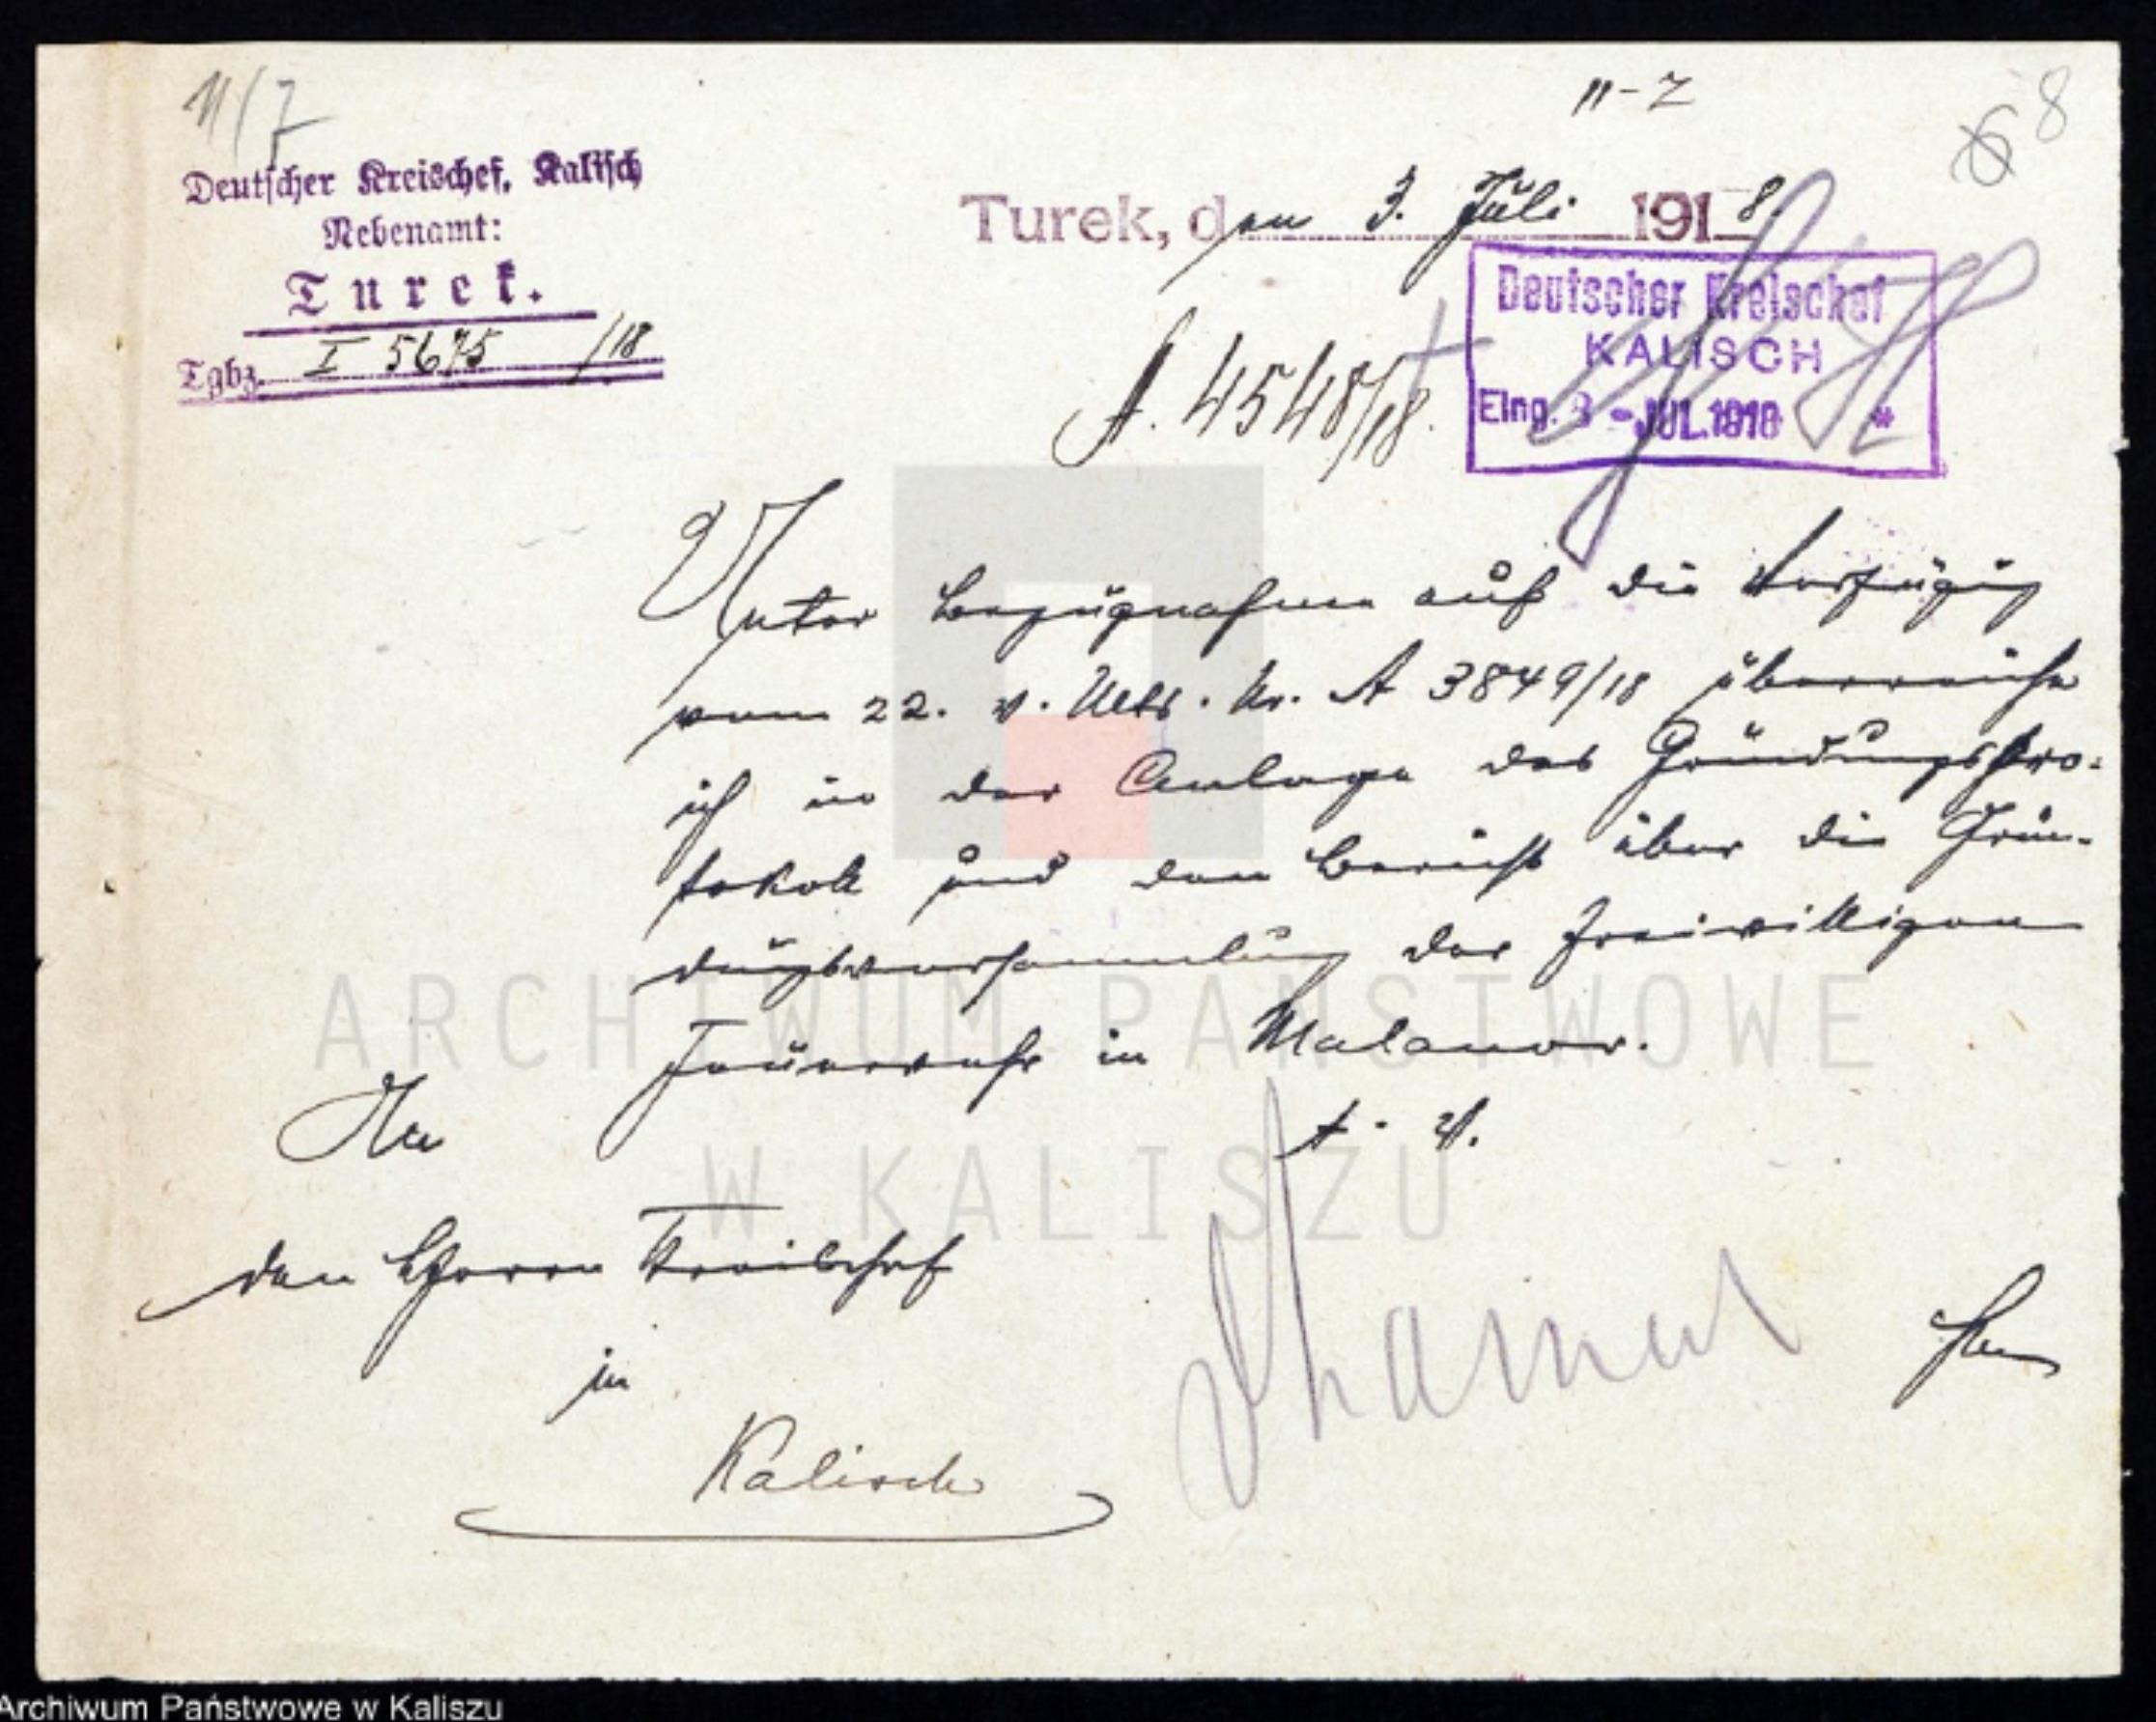 11/7
II-Z
6 8
Deutscher Kreischef, Kalisch
Nebenamt:
Turek.
Tgbz. I 5675 /18
Turek, den 3. Juli 1918.
Deutscher Kreischef
KALISCH
Eing. - JUL. 1918 *
A. 4548/18.
Unter Bezugnahme auf die Verfügung
vom 22. v. Mts. Nr. A 3849/18 überreiche
ich in der Anlage das Gründungspro-
tokoll und den Bericht über die Grün-
dungsversammlung der freiwilligen
Feuerwehr in Malanow.
An
den Herrn Kreischef
in
Kalisch
ARCHIWUM PAŃSTWOWE
W KALISZU
Archiwum Państwowe w Kaliszu